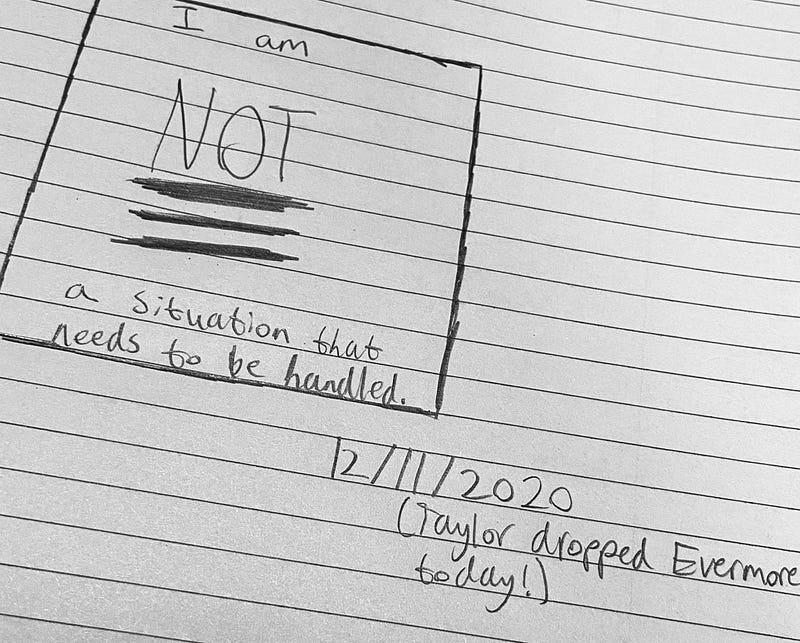 I am
NOT
a situation that
needs to be handled.
12/11/2020
(Taylor dropped Evermore
today!)